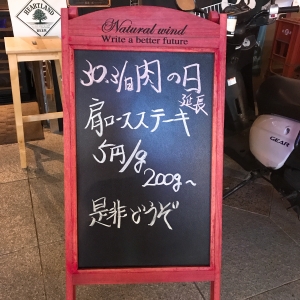 HEARTLAND
BEER
Natural wind
Write a better future
30.31日肉の日
延長
肩ロースステーキ
5円/g
200g〜
是非どうぞ
GEAR